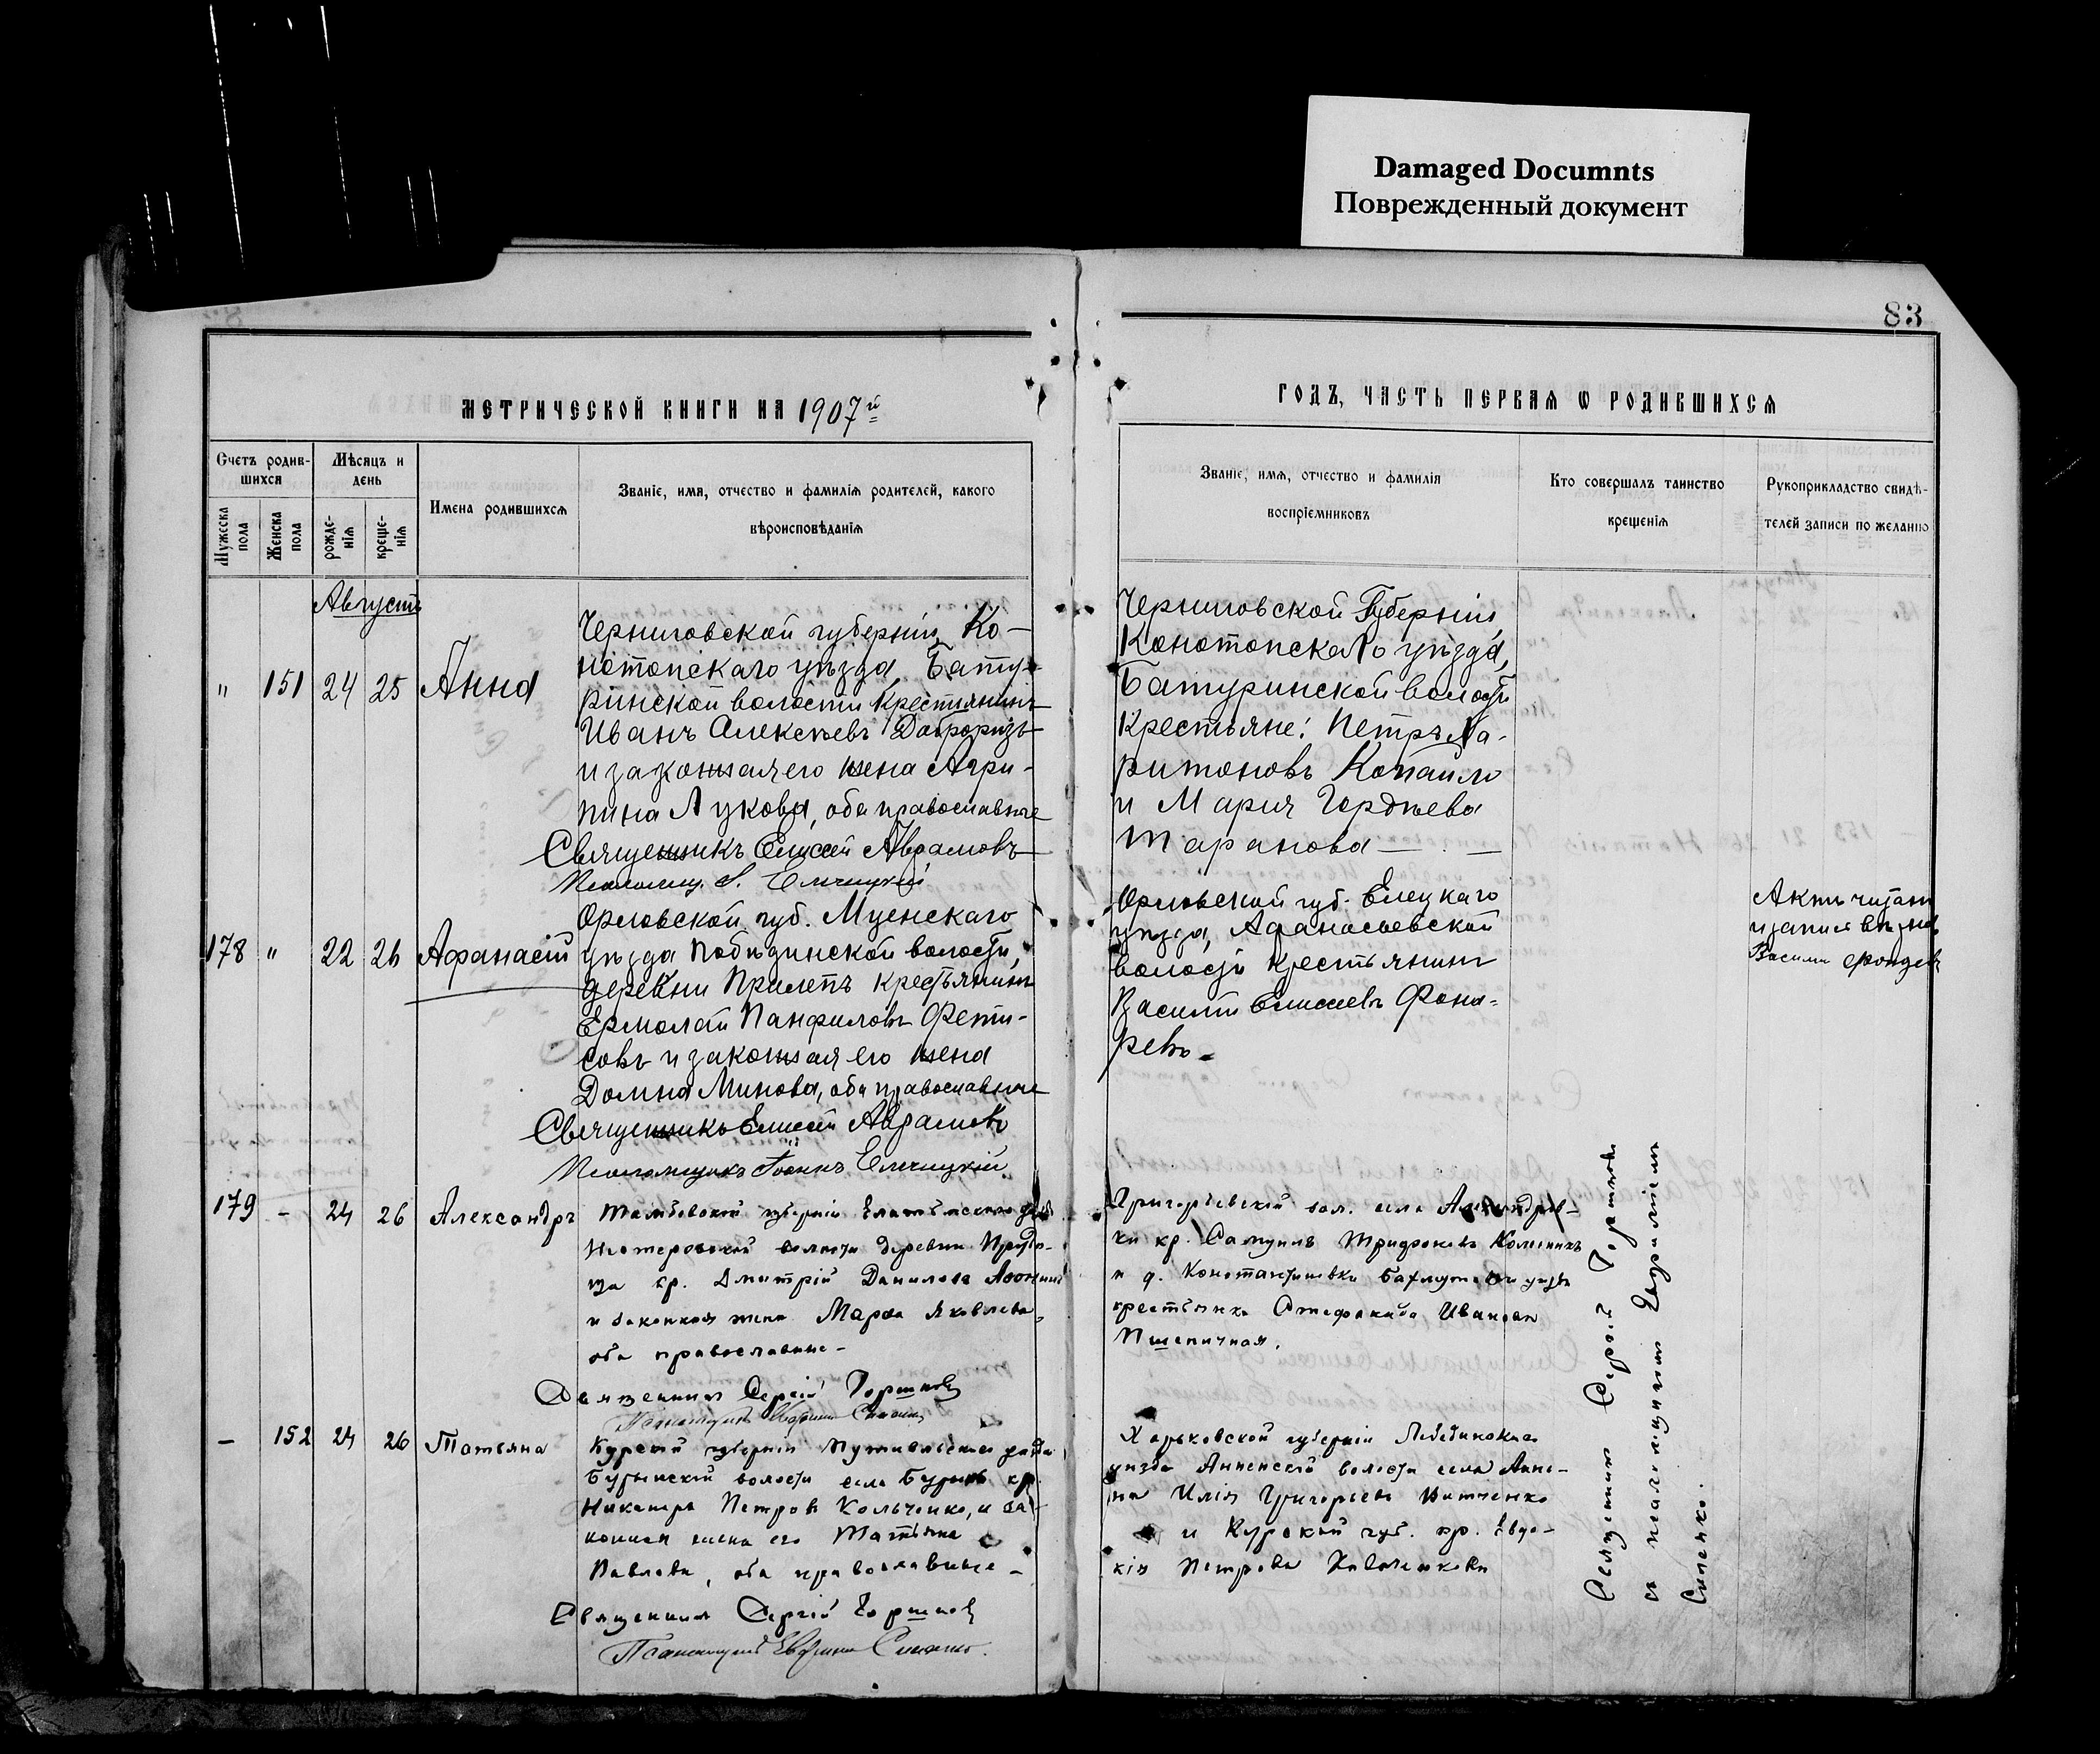 Damaged Documnts
Поврежденный документ
83
МЕТРИЧЕСКОЙ КНИГИ НА 1907й
ГОДЪ, ЧАСТЬ ПЕРВАЯ Ѡ РОДИВШИХСЯ
Счетъ родив-
шихся
Мужеска пола
Женска пола
Мѣсяцъ и
день
рожде-
нія
креще-
нія
Имена родившихся
Званіе, имя, отчество и фамилія родителей, какого
вѣроисповѣданія
Званіе, имя, отчество и фамилія
воспріемниковъ
Кто совершалъ таинство
крещенія
Рукоприкладство свидѣ-
телей записи по желанію
Августъ
" 151 24 25 Анна
Черниговской губерніи, Ко-
нотопскаго уѣзда, Бату-
ринской волости крестьянинъ
Иванъ Алексѣевъ
и законная его жена Агри-
пина Лукова, оба православные
Священникъ Елисей Аврамовъ
Псаломщ. І. Ельчицкій
Черниговской Губерніи,
Конотопскаго уѣзда,
Батуринской волости
Крестьяне: Петръ Ха-
ритоновъ Копайло
и Марія Гордѣева
Таранова
178 " 22 26 Афанасій
Орловской губ. Мценскаго
уѣзда волости,
деревни Прилепъ крестьянинъ
Ермолай Панфиловъ Фети-
совъ и законная его жена
Домна Минова, оба православные
Священникъ Елисей Аврамовъ
Псаломщикъ Іоаннъ Ельчицкій.
Орловской губ. Елецкаго
уѣзда, Афанасьевской
волости крестьянинъ
Василій Елисеевъ Фона-
ревъ
Актъ читалъ
Василій
179 - 24 26 Александръ
Тамбовской губерніи Елатомскаго уѣзда
волости деревни
кр. Дмитрій Даниловъ
и законная жена Марфа Яковлева,
оба православные -
Священникъ Сергій Горшковъ
Григорьевской вол. села Александров-
ки кр. Самуилъ Трифоновъ
и д. Константиновки Бахмутскаго уѣзда
крестьянка Стефанида Иванова
Пшеничная.
- 152 24 26 Татьяна
Курской губерніи Путивльскаго уѣзда
Бурынской волости села Бурынь кр.
Никаноръ Петровъ Кольченко, и за-
конная жена его Татьяна
Павлова, оба православные -
Священникъ Сергій Горшковъ
Псаломщикъ
Харьковской губерніи Лебединскаго
уѣзда Анненской волости села Анне-
на Илія Григорьевъ
и Курской губ. кр. Евдо-
кія Петрова
Священникъ Сергій Горшковъ
съ псаломщикомъ